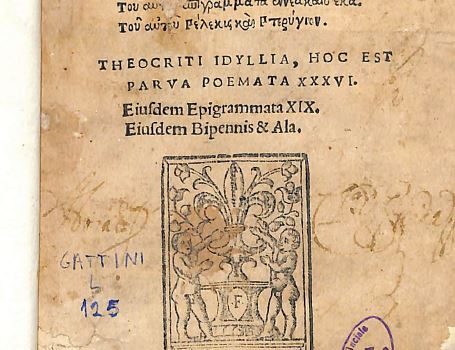 Τοῦ αὐτοῦ ἐπιγράμματα ἐννεακαίδεκα.
Τοῦ αὐτοῦ Πέλεκις καὶ Πτερύγιον.
THEOCRITI IDYLLIA, HOC EST
PARVA POEMATA XXXVI.
Eiuſdem Epigrammata XIX.
Eiuſdem Bipennis & Ala.
GATTINI
L
125
F